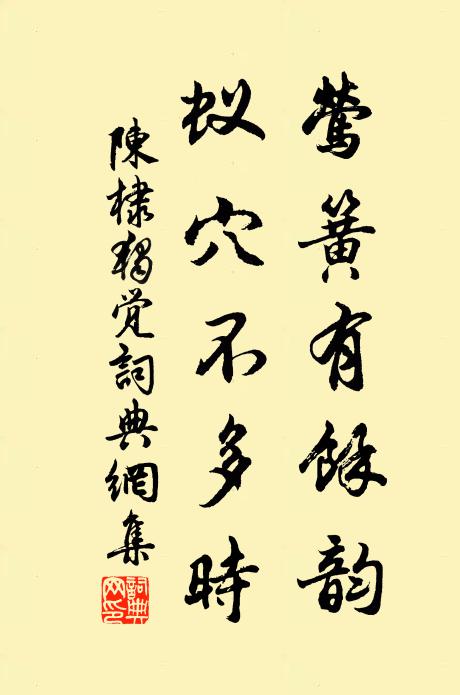 鶯簧有餘韵
蚁穴不多時
陳棣獨觉詞典網集
詞典网印